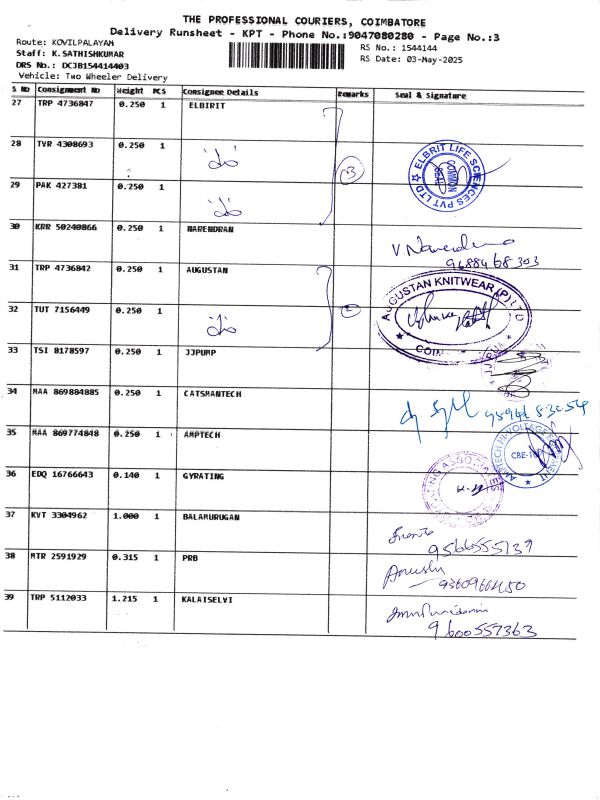 THE PROFESSIONAL COURIERS, COIMBATORE
Delivery Runsheet - KPT - Phone No.:9047080280 - Page No.:3
Route: KOVILPALAYAM
RS No.: 1544144
Staff: K.SATHISHKUMAR
RS Date: 03-May-2025
DRS No.: DCJB154414403
Vehicle: Two Wheeler Delivery
S No Consignment No Weight PCS Consignee Details Remarks Seal & Signature
27 TRP 4736847 0.250 1 ELBIRIT
28 TVR 4308693 0.250 1
ELBRIT LIFE SCIENCES PVT LTD
COMMON SEAL
29 PAK 427381 0.250 1
3
30 KRR 50240866 0.250 1 NARENDRAN
9688468303
31 TRP 4736842 0.250 1 AUGUSTAN
AUGUSTAN KNITWEAR (P) LTD
32 TUT 7156449 0.250 1
33 TSI 8178597 0.250 1 JJPUMP
34 MAA 869884885 0.250 1 CATSMANTECH
35 MAA 869774848 0.250 1 AMPTECH
CBE-
36 EDQ 16766643 0.140 1 GYRATING
37 KVT 3304962 1.000 1 BALAMURUGAN
9566555139
38 MTR 2591929 0.315 1 PRB
39 TRP 5112033 1.215 1 KALAISELVI
9600557363